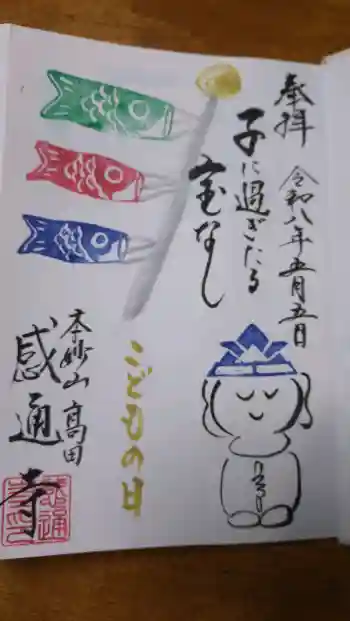 奉拝 令和八年五月五日
子に過ぎたる
宝なし
こどもの日
本妙山 高田
感通寺